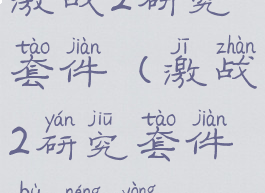 激战2研究
tào jiàn jī zhàn
套件(激战
yán jiū tào jiàn
2研究套件
bù néng yòng